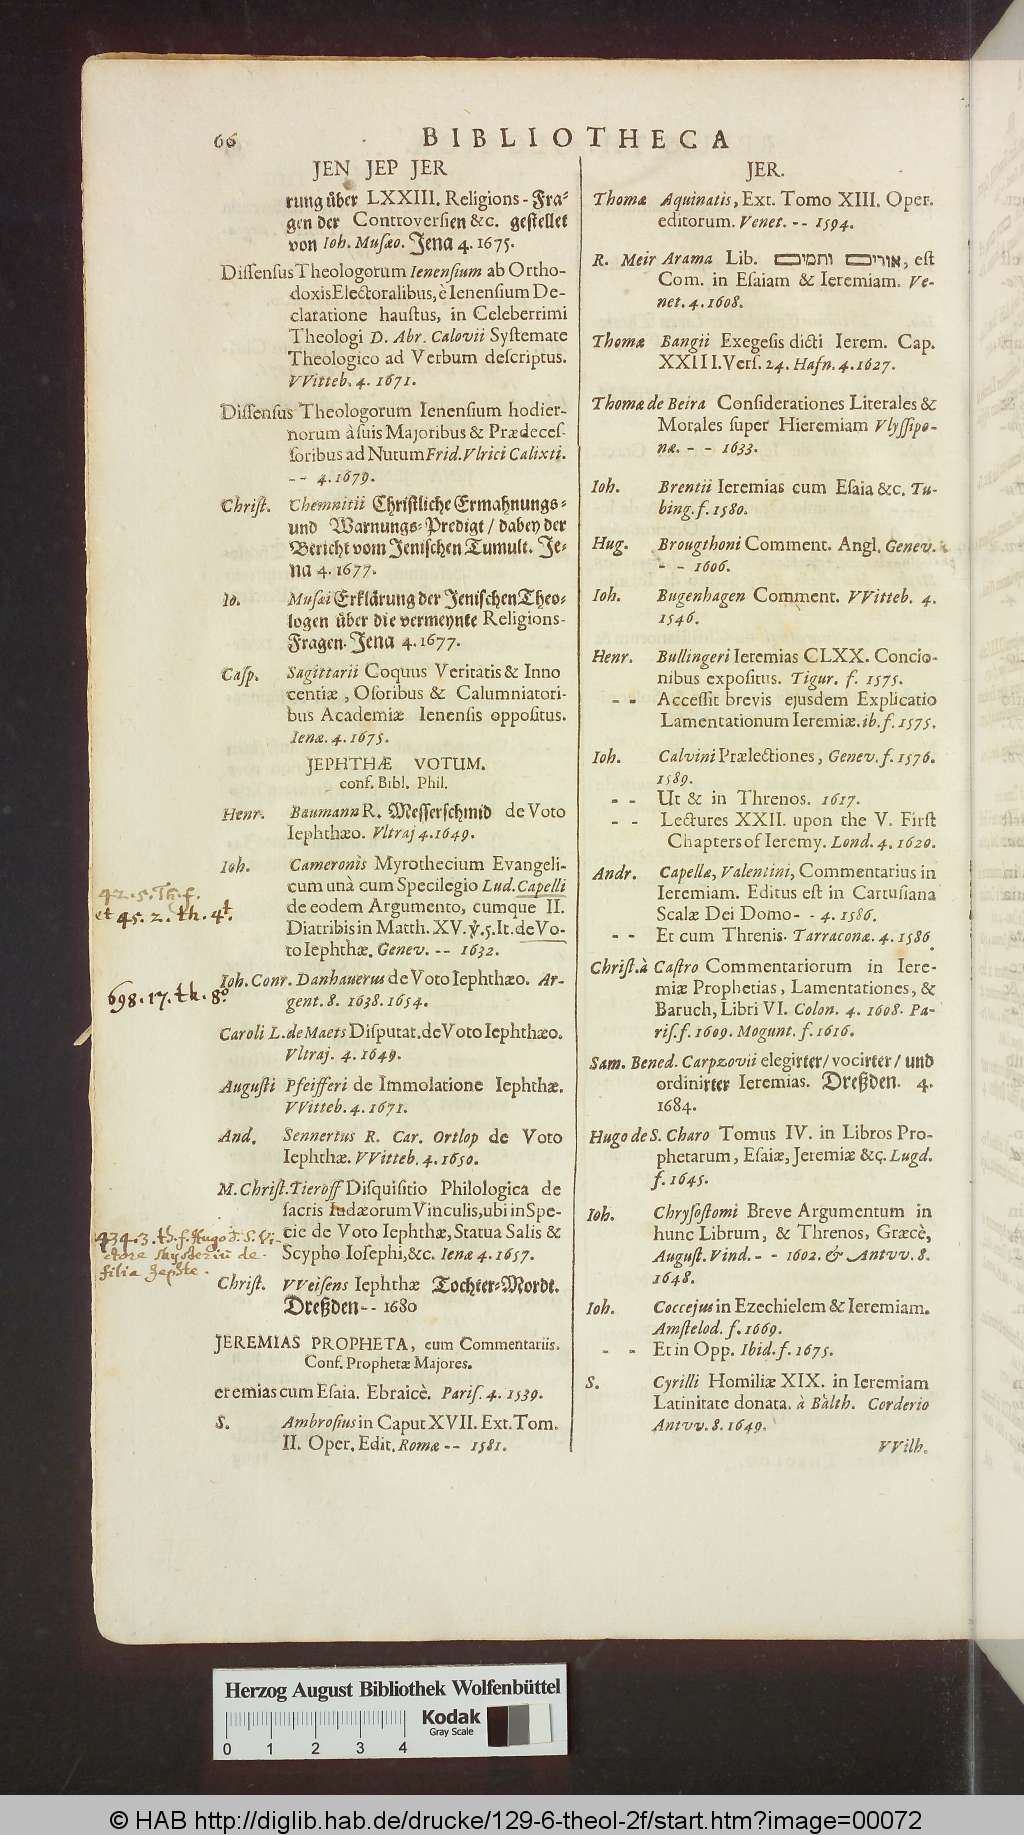 66
BIBLIOTHECA
JEN JEP JER
rung über LXXIII. Religions-Fra-
gen der Controversien &c. gestellet
von Ioh. Musæo. Jena 4. 1675.
Dissensus Theologorum Ienensium ab Ortho-
doxis Electoralibus, è Ienensium De-
claratione haustus, in Celeberrimi
Theologi D. Abr. Calovii Systemate
Theologico ad Verbum descriptus.
VVitteb. 4. 1671.
Dissensus Theologorum Ienensium hodier-
norum à suis Majoribus & Prædeces-
soribus ad Nutum Frid. Vlrici Calixti.
-- 4. 1679.
Christ. Chemnitii Christliche Ermahnungs-
und Warnungs-Predigt / dabey der
Bericht vom Jenischen Tumult. Je-
na 4. 1677.
Io. Musæi Erklärung der Jenischen Theo-
logen über die vermeynte Religions-
Fragen. Jena 4. 1677.
Casp. Sagittarii Coquus Veritatis & Inno
centiæ, Osoribus & Calumniatori-
bus Academiæ Ienensis oppositus.
Ienæ. 4. 1675.
JEPHTHÆ VOTUM.
conf. Bibl. Phil.
Henr. Baumann R. Messerschmid de Voto
Iephthæo. Vltraj 4. 1649.
Ioh. Cameronis Myrothecium Evangeli-
cum unà cum Specilegio Lud. Capelli
42. 5. Th. f.
de eodem Argumento, cumque II.
et 45. 2. th. 4t.
Diatribis in Matth. XV. ꝟ. 5. It. de Vo-
to Iephthæ. Genev. -- 1632.
Ioh. Conr. Danhauerus de Voto Iephthæo. Ar-
698. 17. th. 8o
gent. 8. 1638. 1654.
Caroli L. de Maets Disputat. de Voto Iephthæo.
Vltraj. 4. 1649.
Augusti Pfeifferi de Immolatione Iephthæ.
VVitteb. 4. 1671.
And. Sennertus R. Car. Ortlop de Voto
Iephthæ. VVitteb. 4. 1650.
M. Christ. Tieroff Disquisitio Philologica de
sacris Iudæorum Vinculis, ubi in Spe-
cie de Voto Iephthæ, Statua Salis &
Scypho Iosephi, &c. Ienæ 4. 1657.
434. 3. th. f. Hugo d. S. Vi-
ctore Mysteriū de
filia Jephte.
Christ. VVeisens Iephthæ Tochter-Mordt.
Dreßden -- 1680
JEREMIAS PROPHETA, cum Commentariis.
Conf. Prophetæ Majores.
eremias cum Esaia. Ebraicè. Paris. 4. 1539.
S. Ambrosius in Caput XVII. Ext. Tom.
II. Oper. Edit. Romæ -- 1581.
JER.
Thomæ Aquinatis, Ext. Tomo XIII. Oper.
editorum. Venet. -- 1594.
R. Meir Arama Lib. אורים ותמים, est
Com. in Esaiam & Ieremiam. Ve-
net. 4. 1608.
Thomæ Bangii Exegesis dicti Ierem. Cap.
XXIII. Vers. 24. Hafn. 4. 1627.
Thomæ de Beira Considerationes Literales &
Morales super Hieremiam Vlyssipo-
næ. - - 1633.
Ioh. Brentii Ieremias cum Esaia &c. Tu-
bing. f. 1580.
Hug. Brougthoni Comment. Angl. Genev.
- - 1606.
Ioh. Bugenhagen Comment. VVitteb. 4.
1546.
Henr. Bullingeri Ieremias CLXX. Concio-
nibus expositus. Tigur. f. 1575.
- - Accessit brevis ejusdem Explicatio
Lamentationum Ieremiæ. ib. f. 1575.
Ioh. Calvini Prælectiones, Genev. f. 1576.
1589.
- - Ut & in Threnos. 1617.
- - Lectures XXII. upon the V. First
Chapters of Ieremy. Lond. 4. 1620.
Andr. Capellæ, Valentini, Commentarius in
Ieremiam. Editus est in Cartusiana
Scalæ Dei Domo - - 4. 1586.
- - Et cum Threnis. Tarraconæ. 4. 1586
Christ. à Castro Commentariorum in Iere-
miæ Prophetias, Lamentationes, &
Baruch, Libri VI. Colon. 4. 1608. Pa-
ris. f. 1609. Mogunt. f. 1616.
Sam. Bened. Carpzovii elegirter / vocirter / und
ordinirter Ieremias. Dreßden. 4.
1684.
Hugo de S. Charo Tomus IV. in Libros Pro-
phetarum, Esaiæ, Jeremiæ &c. Lugd.
f. 1645.
Ioh. Chrysostomi Breve Argumentum in
hunc Librum, & Threnos, Græcè,
August. Vind. - - 1602. & Antvv. 8.
1648.
Ioh. Coccejus in Ezechielem & Ieremiam.
Amstelod. f. 1669.
- - Et in Opp. Ibid. f. 1675.
S. Cyrilli Homiliæ XIX. in Ieremiam
Latinitate donata. à Balth. Corderio
Antvv. 8. 1649.
VVilh.
Herzog August Bibliothek Wolfenbüttel
Kodak
Gray Scale
0 1 2 3 4
© HAB http://diglib.hab.de/drucke/129-6-theol-2f/start.htm?image=00072